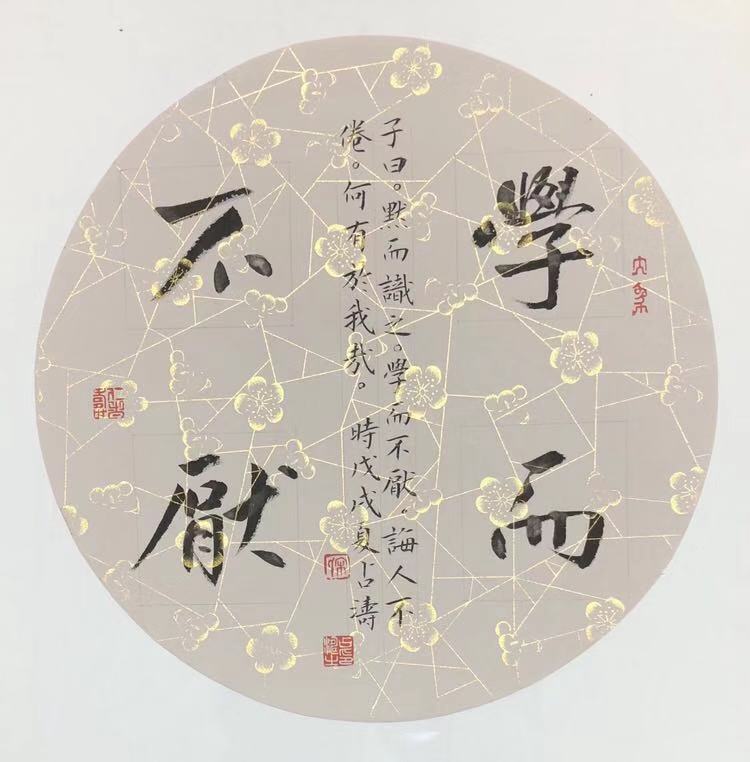 學而
子曰。默而識之。學而不厭。誨人不
倦。何有於我哉。時戊戌夏占濤
不厭